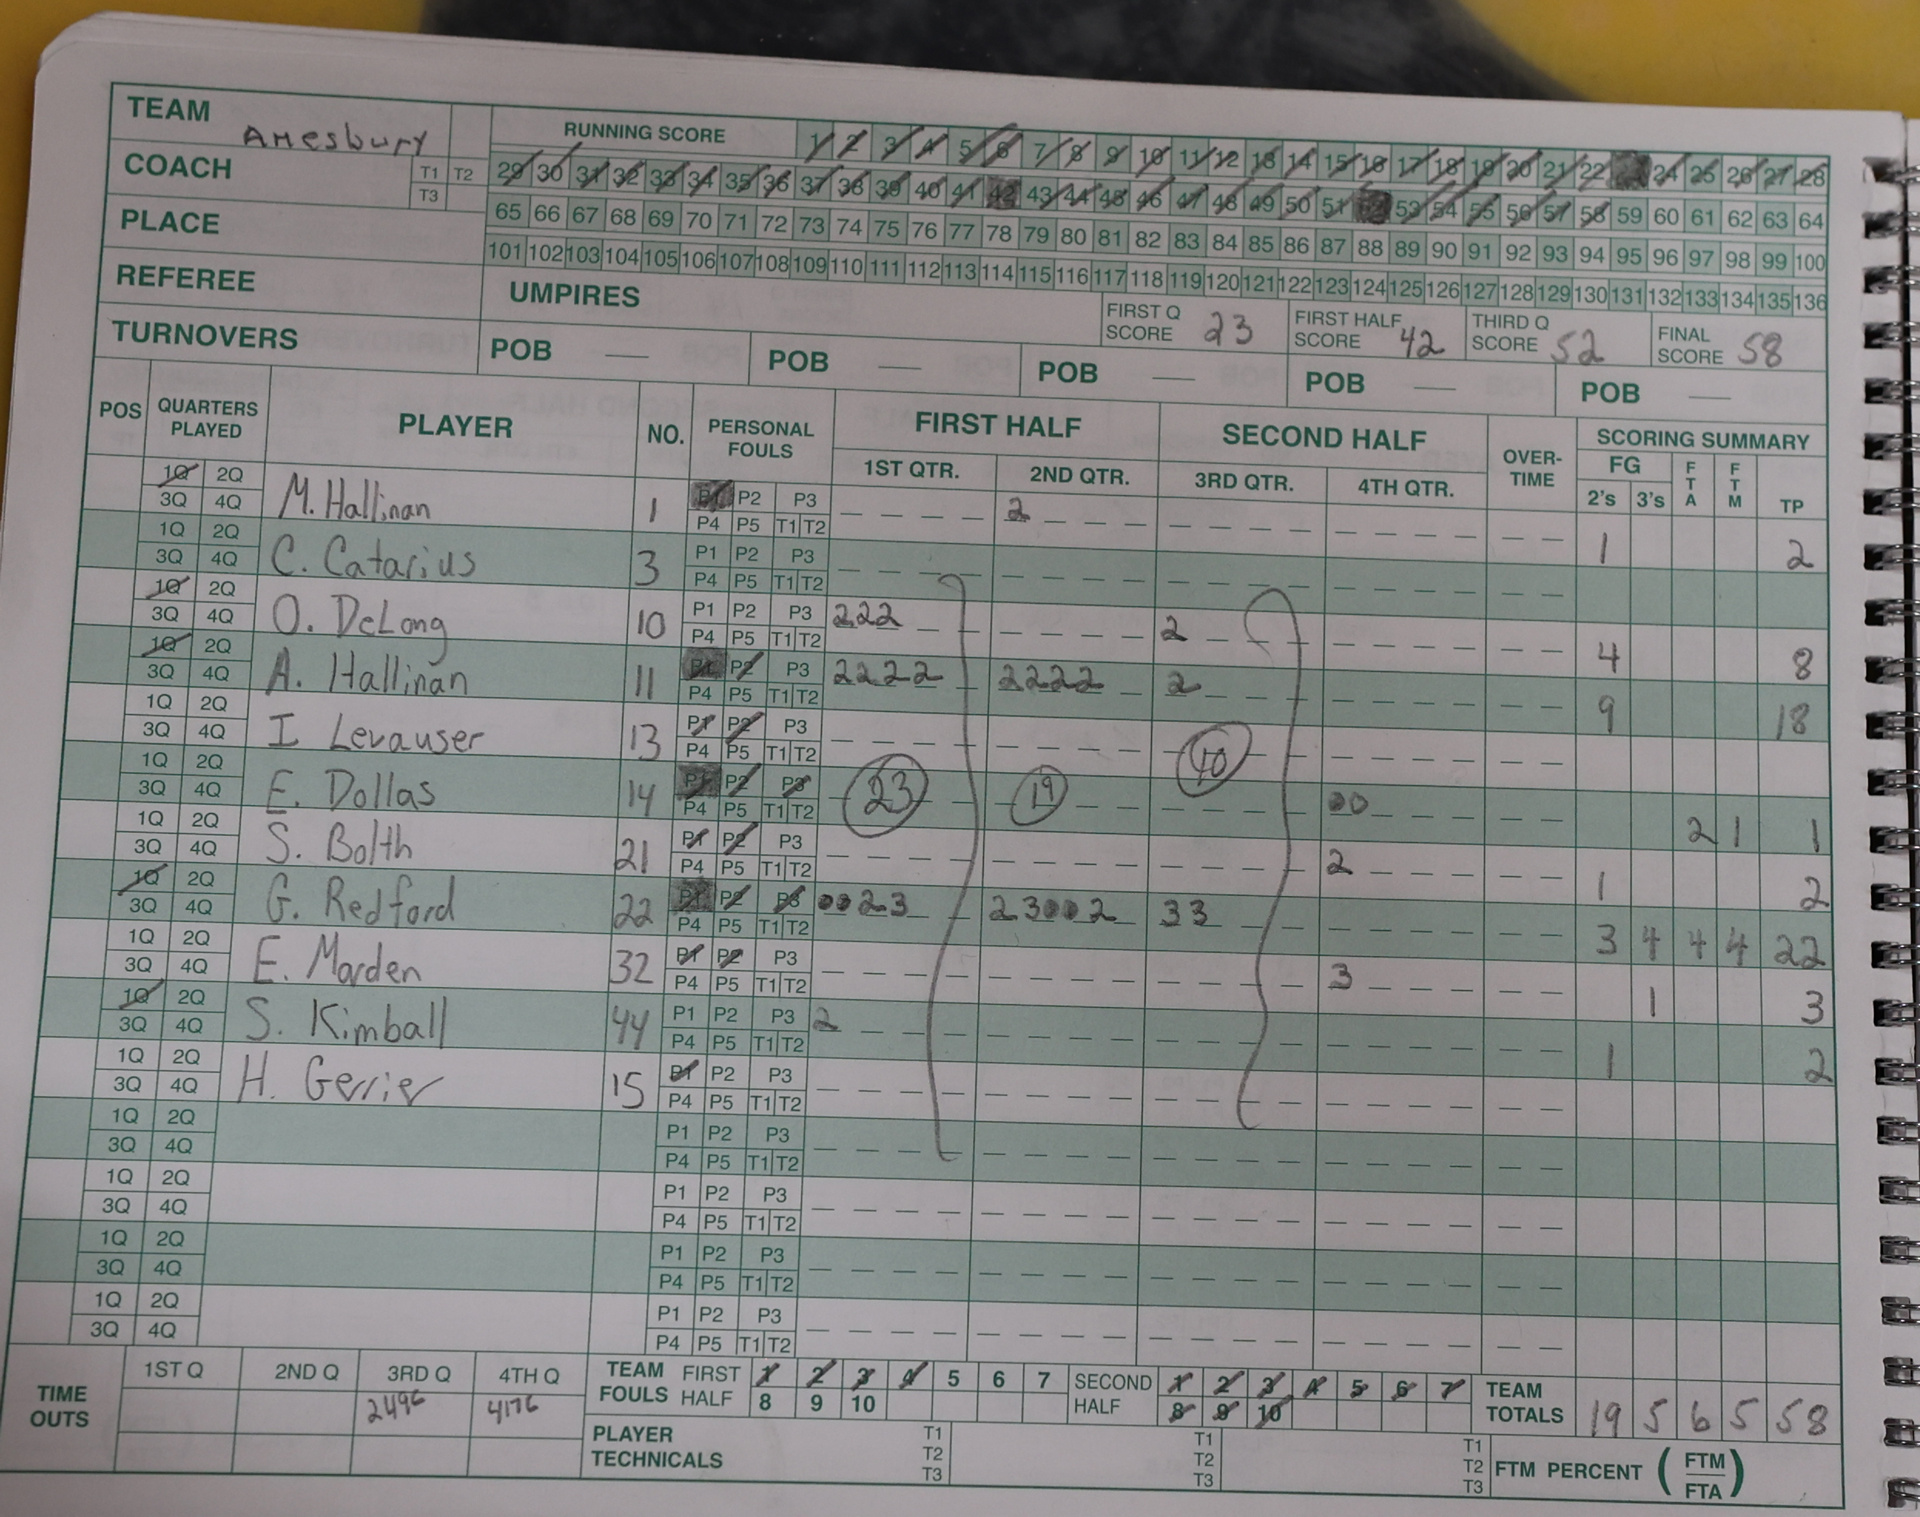 TEAM Amesbury
RUNNING SCORE 1 2 3 4 5 6 7 8 9 10 11 12 13 14 15 16 17 18 19 20 21 22 24 25 26 27 28
COACH T1 T2 T3
29 30 31 32 33 34 35 36 37 38 39 40 41 42 43 44 45 46 47 48 49 50 51 53 54 55 56 57 58 59 60 61 62 63 64
PLACE
65 66 67 68 69 70 71 72 73 74 75 76 77 78 79 80 81 82 83 84 85 86 87 88 89 90 91 92 93 94 95 96 97 98 99 100
101 102 103 104 105 106 107 108 109 110 111 112 113 114 115 116 117 118 119 120 121 122 123 124 125 126 127 128 129 130 131 132 133 134 135 136
REFEREE
UMPIRES
FIRST Q SCORE 23
FIRST HALF SCORE 42
THIRD Q SCORE 52
FINAL SCORE 58
TURNOVERS
POB — POB — POB — POB — POB —
POS QUARTERS PLAYED PLAYER NO. PERSONAL FOULS FIRST HALF SECOND HALF OVER-TIME SCORING SUMMARY
1ST QTR. 2ND QTR. 3RD QTR. 4TH QTR. FG 2's 3's FTA FTM TP
1Q 2Q 3Q 4Q M. Hallinan 1 P1 P2 P3 P4 P5 T1 T2 2 1 2
1Q 2Q 3Q 4Q C. Catarius 3 P1 P2 P3 P4 P5 T1 T2
1Q 2Q 3Q 4Q O. DeLong 10 P1 P2 P3 P4 P5 T1 T2 222 2 4 8
1Q 2Q 3Q 4Q A. Hallinan 11 P1 P2 P3 P4 P5 T1 T2 2222 2222 2 9 18
1Q 2Q 3Q 4Q I Levauser 13 P1 P2 P3 P4 P5 T1 T2
1Q 2Q 3Q 4Q E. Dollas 14 P1 P2 P3 P4 P5 T1 T2 23 19 10 00 2 1 1
1Q 2Q 3Q 4Q S. Bolth 21 P1 P2 P3 P4 P5 T1 T2 2 1 2
1Q 2Q 3Q 4Q G. Redford 22 P1 P2 P3 P4 P5 T1 T2 0023 23002 33 3 4 4 4 22
1Q 2Q 3Q 4Q E. Marden 32 P1 P2 P3 P4 P5 T1 T2 3 1 3
1Q 2Q 3Q 4Q S. Kimball 44 P1 P2 P3 P4 P5 T1 T2 2 1 2
1Q 2Q 3Q 4Q H. Gerrier 15 P1 P2 P3 P4 P5 T1 T2
1Q 2Q 3Q 4Q P1 P2 P3 P4 P5 T1 T2
1Q 2Q 3Q 4Q P1 P2 P3 P4 P5 T1 T2
1Q 2Q 3Q 4Q P1 P2 P3 P4 P5 T1 T2
1Q 2Q 3Q 4Q P1 P2 P3 P4 P5 T1 T2
TIME OUTS 1ST Q 2ND Q 3RD Q 4TH Q
TEAM FOULS FIRST HALF 1 2 3 4 5 6 7 8 9 10
SECOND HALF 1 2 3 4 5 6 7 8 9 10
TEAM TOTALS 19 5 6 5 58
PLAYER TECHNICALS T1 T2 T3 T1 T2 T3 T1 T2 T3
FTM PERCENT (FTM FTA)